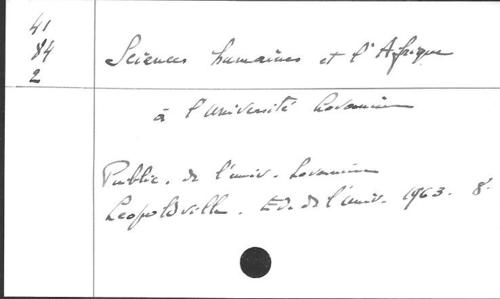 41
84
2
Sciences humaines et l'Afrique
à l'Université Lovanium
Public. de l'univ. Lovanium
Leopoldville. Ed. de l'univ. 1963. 8°